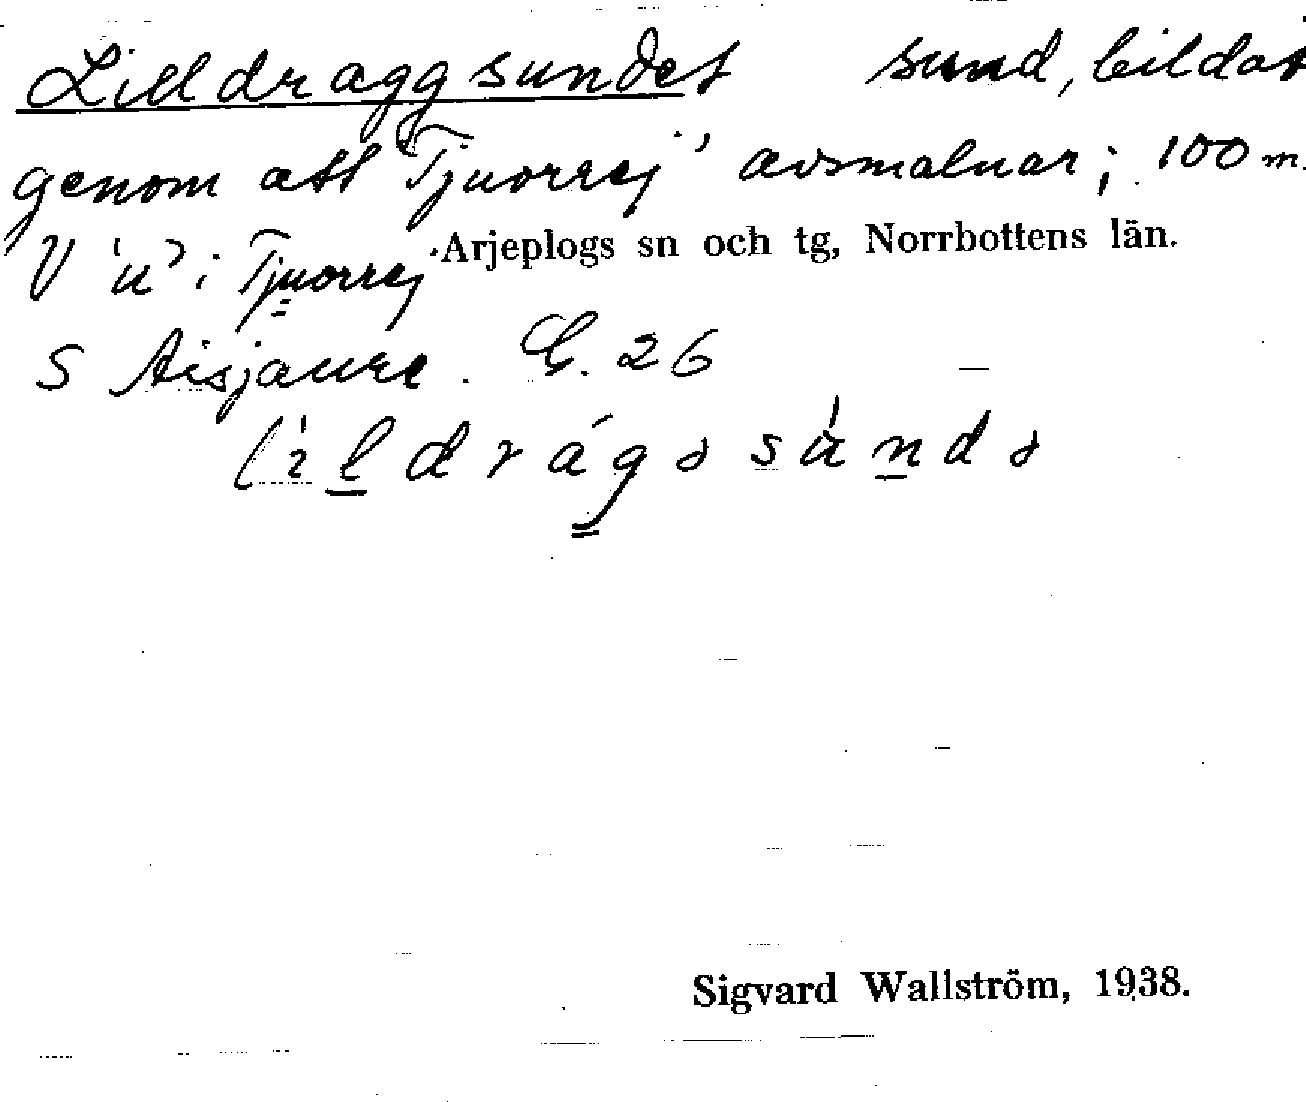 Lilldraggsundet sund, bildat
genom att 'Tjuorrej' avsmalnar; 100 m.
V 'u' i Tjuorrej Arjeplogs sn och tg, Norrbottens län.
S Aisjaure. G. 26
lìldrágə sùndə
Sigvard Wallström, 1938.